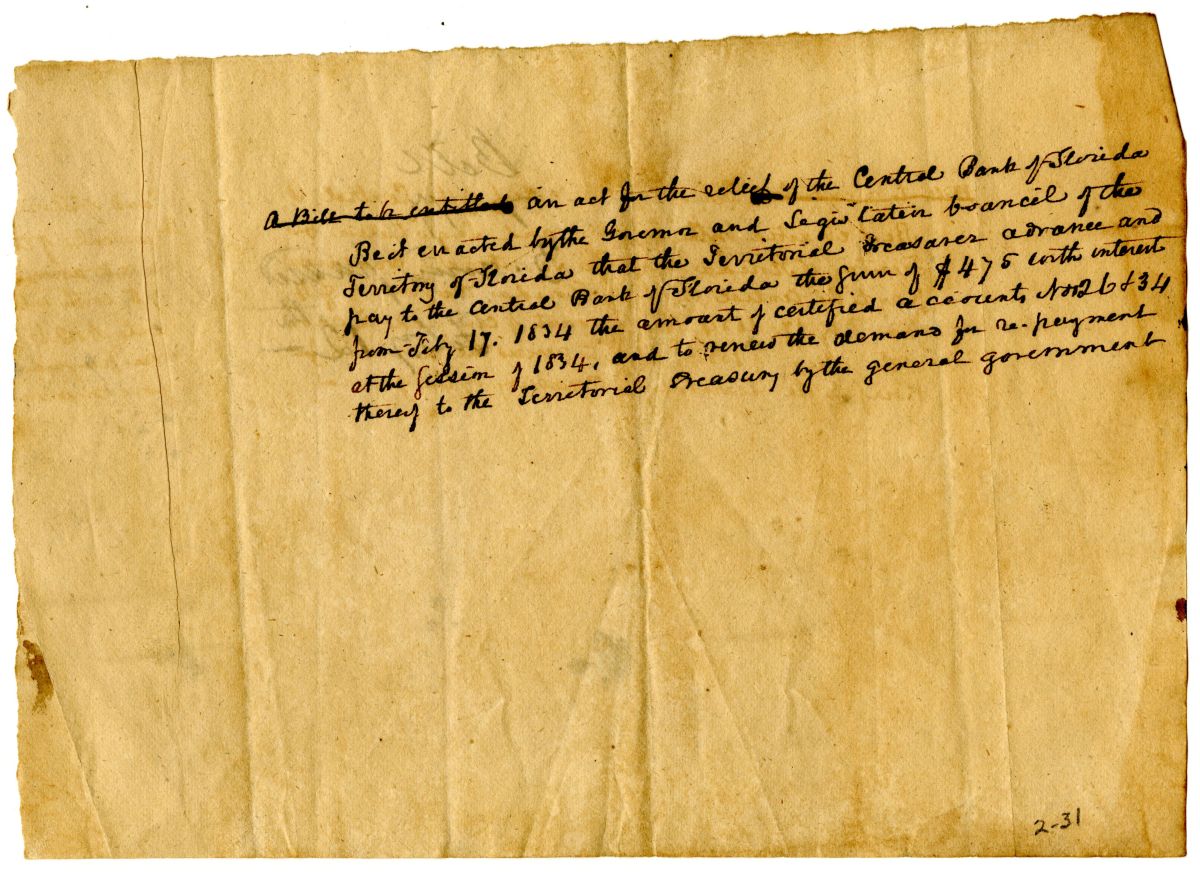 A Bill to be entitled an act for the relief of the Central Bank of Florida
Be it enacted by the Governor and Legislative Council of the
Territory of Florida that the Territorial Treasurer advance and
pay to the Central Bank of Florida the sum of $475 with interest
from Feby 17. 1834 the amount of certified accounts Nos 26 & 34
at the Session of 1834, and to renew the demand for re-payment
thereof to the Territorial Treasury by the general government
2-31